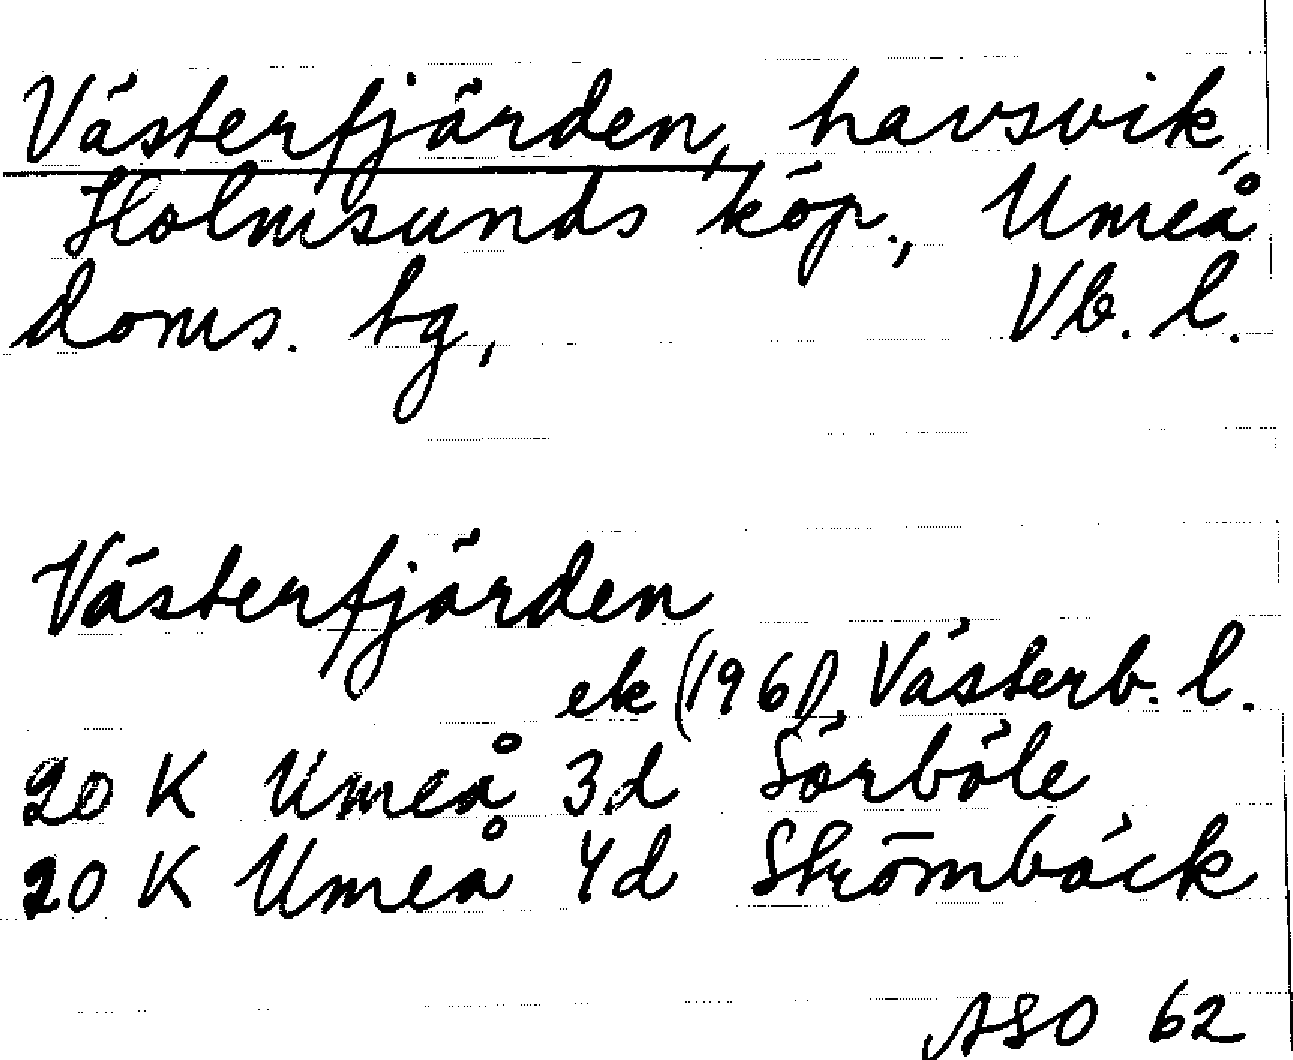 Västerfjärden, havsvik,
Holmsunds köp., Umeå
doms. tg, Vb. l.
Västerfjärden
ek (1961), Västerb. l.
20 K Umeå 3d Sörböle
20 K Umeå 4d Strömbäck
ASO 62